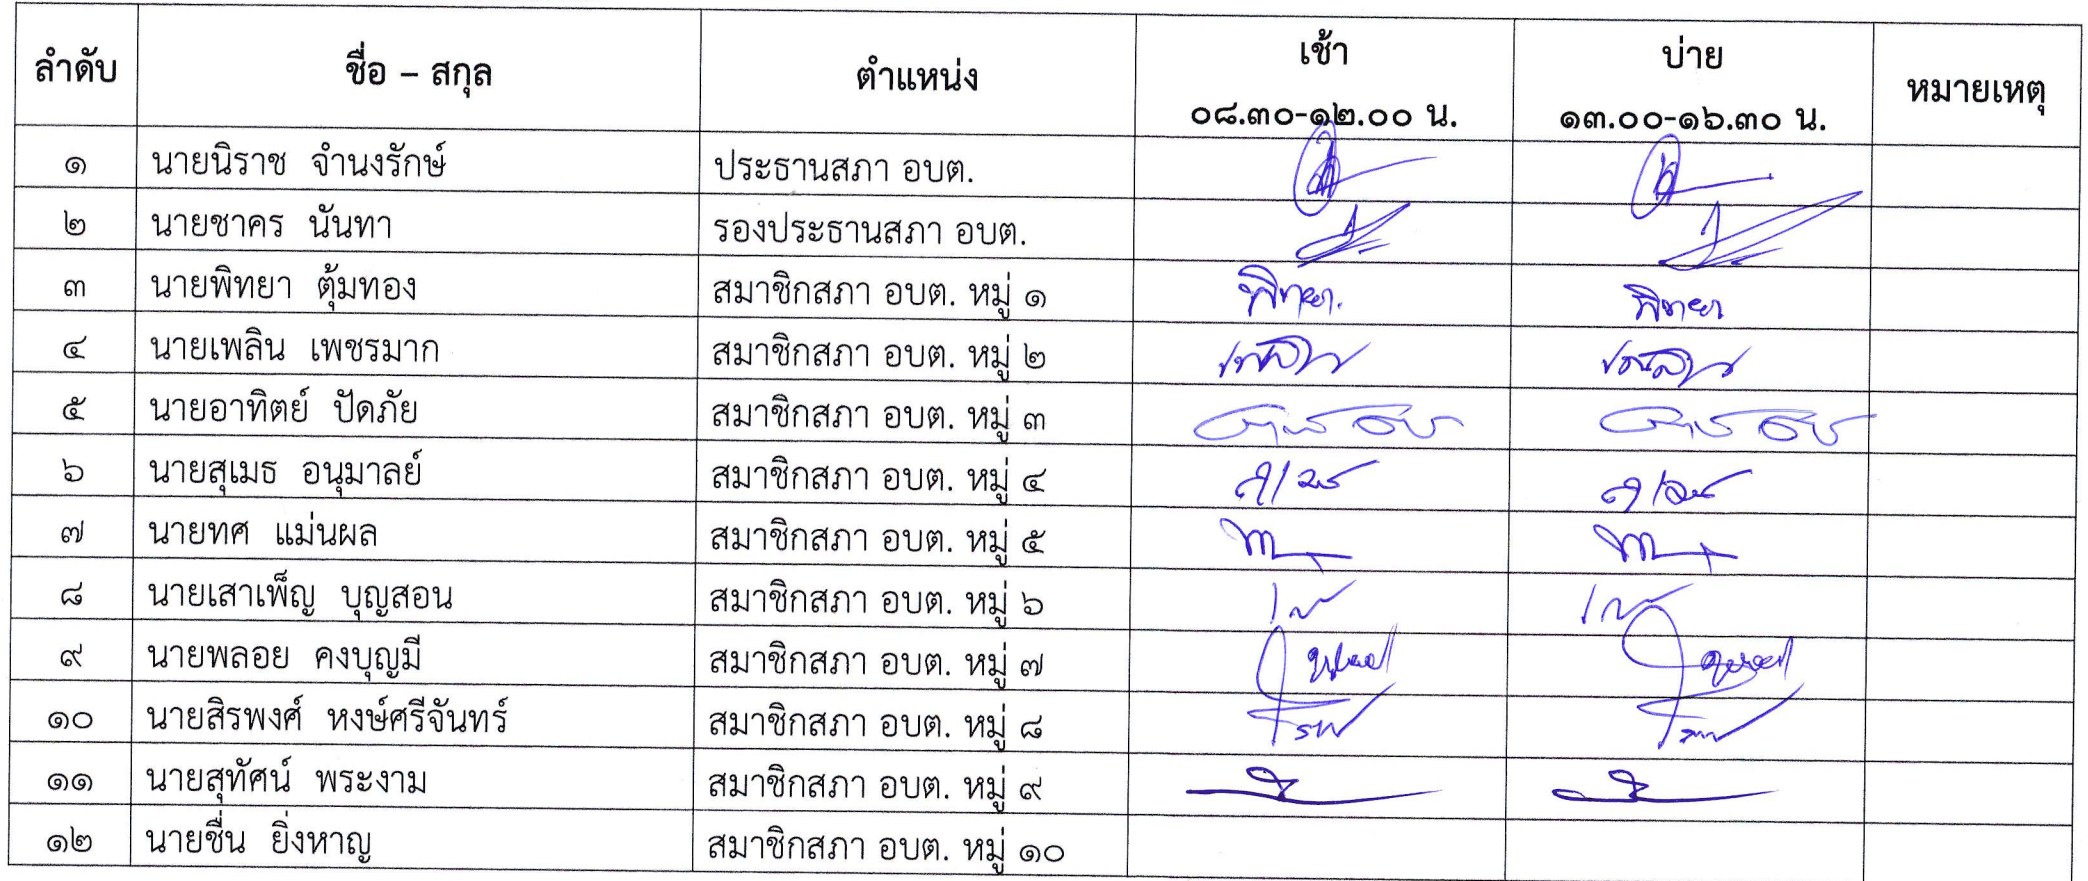 ลำดับ ชื่อ – สกุล ตำแหน่ง เช้า ๐๘.๓๐-๑๒.๐๐ น. บ่าย ๑๓.๐๐-๑๖.๓๐ น. หมายเหตุ
๑ นายนิราช จำนงรักษ์ ประธานสภา อบต.
๒ นายชาคร นันทา รองประธานสภา อบต.
๓ นายพิทยา ตุ้มทอง สมาชิกสภา อบต. หมู่ ๑ พิทยา. พิทยา
๔ นายเพลิน เพชรมาก สมาชิกสภา อบต. หมู่ ๒
๕ นายอาทิตย์ ปัดภัย สมาชิกสภา อบต. หมู่ ๓
๖ นายสุเมธ อนุมาลย์ สมาชิกสภา อบต. หมู่ ๔
๗ นายทศ แม่นผล สมาชิกสภา อบต. หมู่ ๕
๘ นายเสาเพ็ญ บุญสอน สมาชิกสภา อบต. หมู่ ๖
๙ นายพลอย คงบุญมี สมาชิกสภา อบต. หมู่ ๗
๑๐ นายสิรพงศ์ หงษ์ศรีจันทร์ สมาชิกสภา อบต. หมู่ ๘
๑๑ นายสุทัศน์ พระงาม สมาชิกสภา อบต. หมู่ ๙
๑๒ นายชื่น ยิ่งหาญ สมาชิกสภา อบต. หมู่ ๑๐